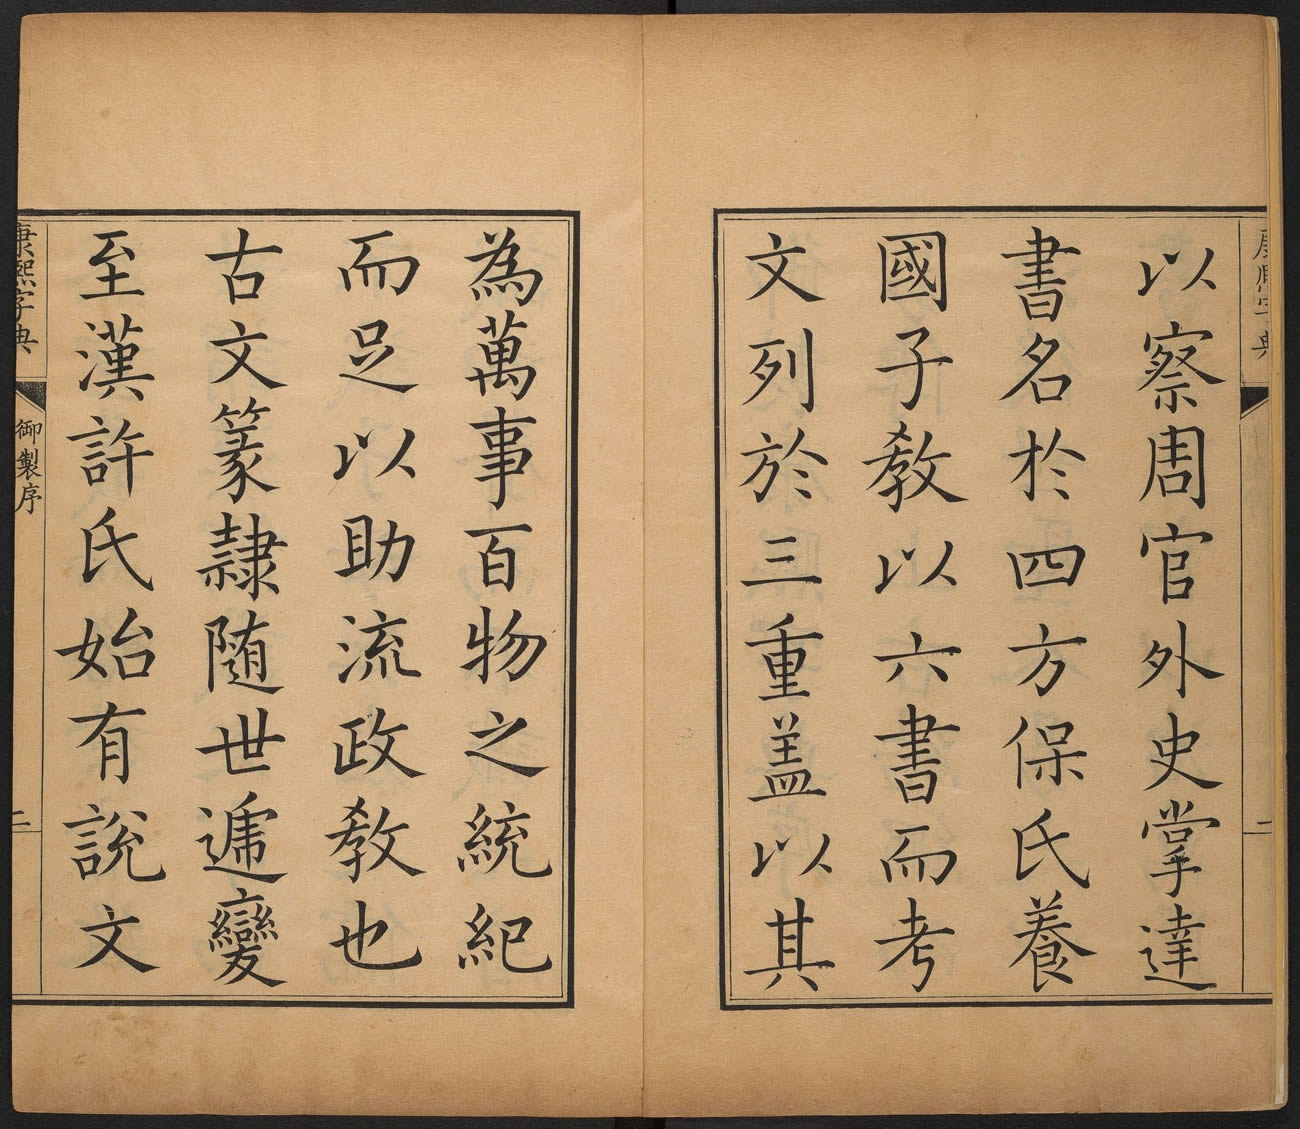 康熙字典
一
以察周官外史掌達
書名於四方保氏養
國子教以六書而考
文列於三重葢以其
為萬事百物之統紀
而足以助流政教也
古文篆隷随世遞變
至漢許氏始有說文
康熙字典
御製序
二